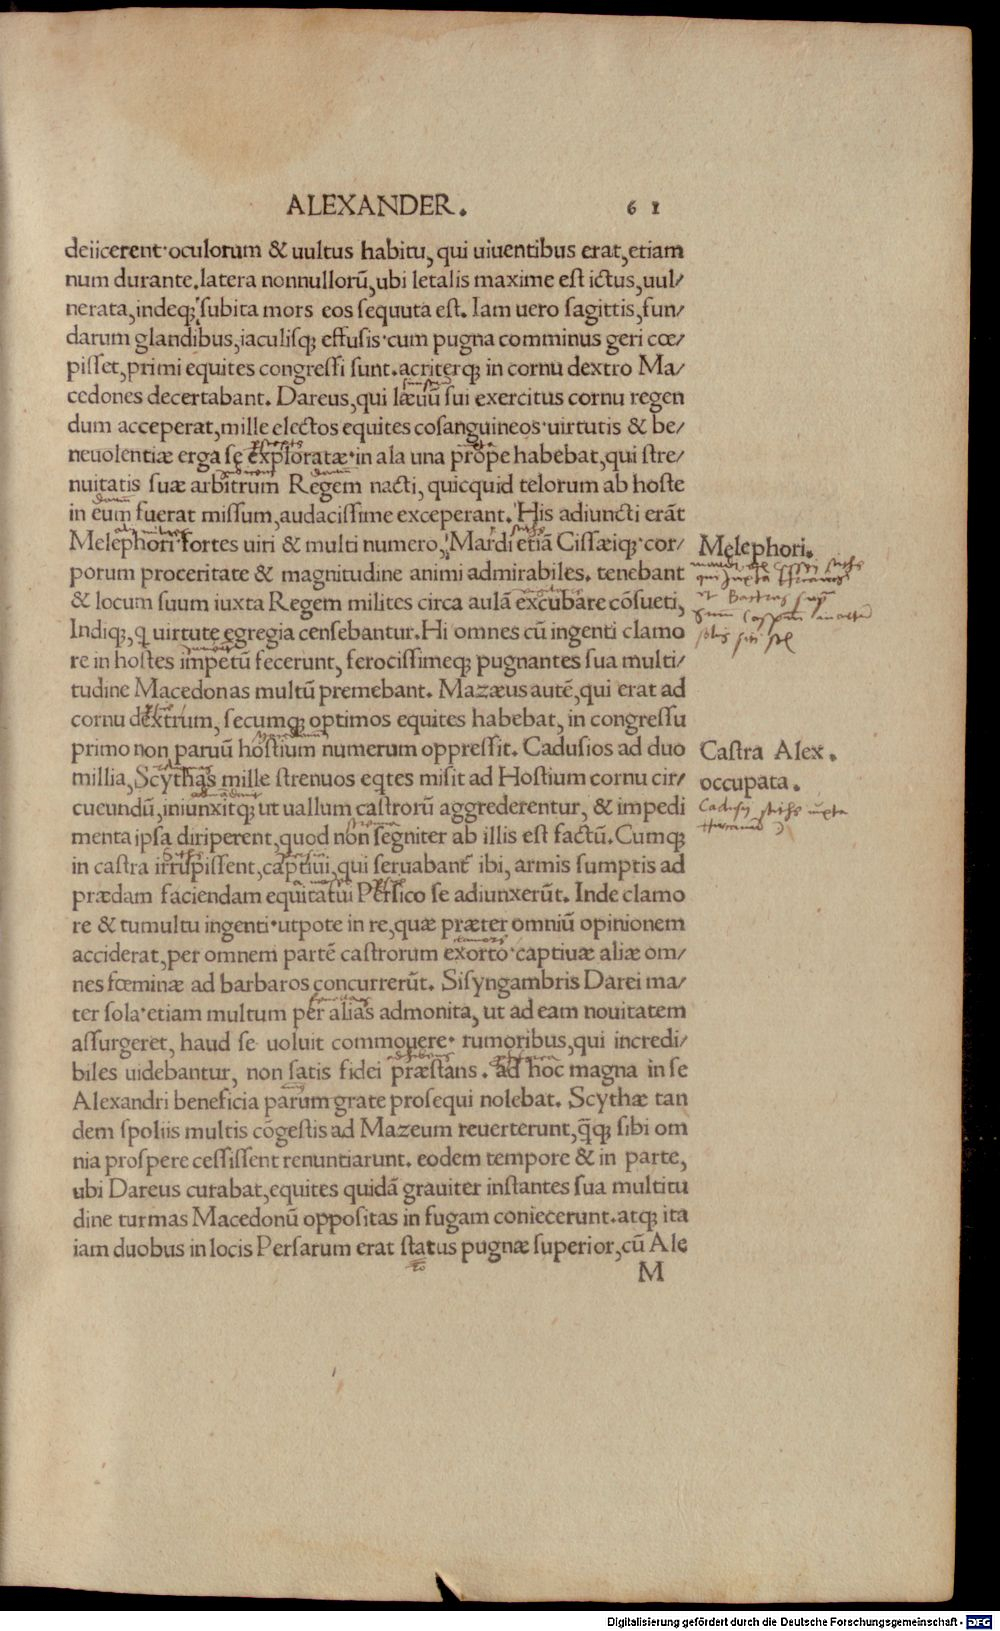 ALEXANDER. 61
deiicerent·oculorum & uultus habitu, qui uiuentibus erat, etiam
num durante. latera nonnullorū, ubi letalis maxime est ictus, uul/
nerata, indeq; subita mors eos sequuta est. Iam uero sagittis, fun/
darum glandibus, iaculisq; effusis·cum pugna comminus geri cœ/
pisset, primi equites congressi sunt. acriterq; in cornu dextro Ma/
cedones decertabant. Dareus, qui læuū sui exercitus cornu regen
dum acceperat, mille electos equites cosanguineos·uirtutis & be/
neuolentiæ erga se exploratæ·in ala una prope habebat, qui stre/
nuitatis suæ arbitrum Regem nacti, quicquid telorum ab hoste
in eum fuerat missum, audacissime exceperant. His adiuncti erāt
Melephori·fortes uiri & multi numero, Mardi etiā Cissæiq;·cor/
porum proceritate & magnitudine animi admirabiles. tenebant
& locum suum iuxta Regem milites circa aulā excubare cōsueti,
Indiq;, q uirtute egregia censebantur. Hi omnes cū ingenti clamo
re in hostes impetū fecerunt, ferocissimeq; pugnantes sua multi/
tudine Macedonas multū premebant. Mazæus autē, qui erat ad
cornu dextrum, secumq; optimos equites habebat, in congressu
primo non paruū hostium numerum oppressit. Cadusios ad duo
millia, Scythas mille strenuos eqtes misit ad Hostium cornu cir/
cueundū, iniunxitq; ut uallum castrorū aggrederentur, & impedi
menta ipsa diriperent, quod non segniter ab illis est factū. Cumq;
in castra irrupissent, captiui, qui seruabant̄ ibi, armis sumptis ad
prædam faciendam equitatui Persico se adiunxerūt. Inde clamo
re & tumultu ingenti·utpote in re, quæ præter omniū opinionem
acciderat, per omnem partē castrorum exorto·captiuæ aliæ om/
nes fœminæ ad barbaros concurrerūt. Sisyngambris Darei ma/
ter sola·etiam multum per alias admonita, ut ad eam nouitatem
assurgeret, haud se uoluit commouere· rumoribus, qui incredi/
biles uidebantur, non satis fidei præstans. ad hoc magna in se
Alexandri beneficia parum grate prosequi nolebat. Scythæ tan
dem spoliis multis cōgestis ad Mazeum reuerterunt, q̄q; sibi om
nia prospere cessissent renuntiarunt. eodem tempore & in parte,
ubi Dareus curabat, equites quidā grauiter instantes sua multitu
dine turmas Macedonū oppositas in fugam coniecerunt. atq; ita
iam duobus in locis Persarum erat status pugnæ superior, cū Ale
M
Melephori.
Castra Alex.
occupata.
Digitalisierung gefördert durch die Deutsche Forschungsgemeinschaft - DFG